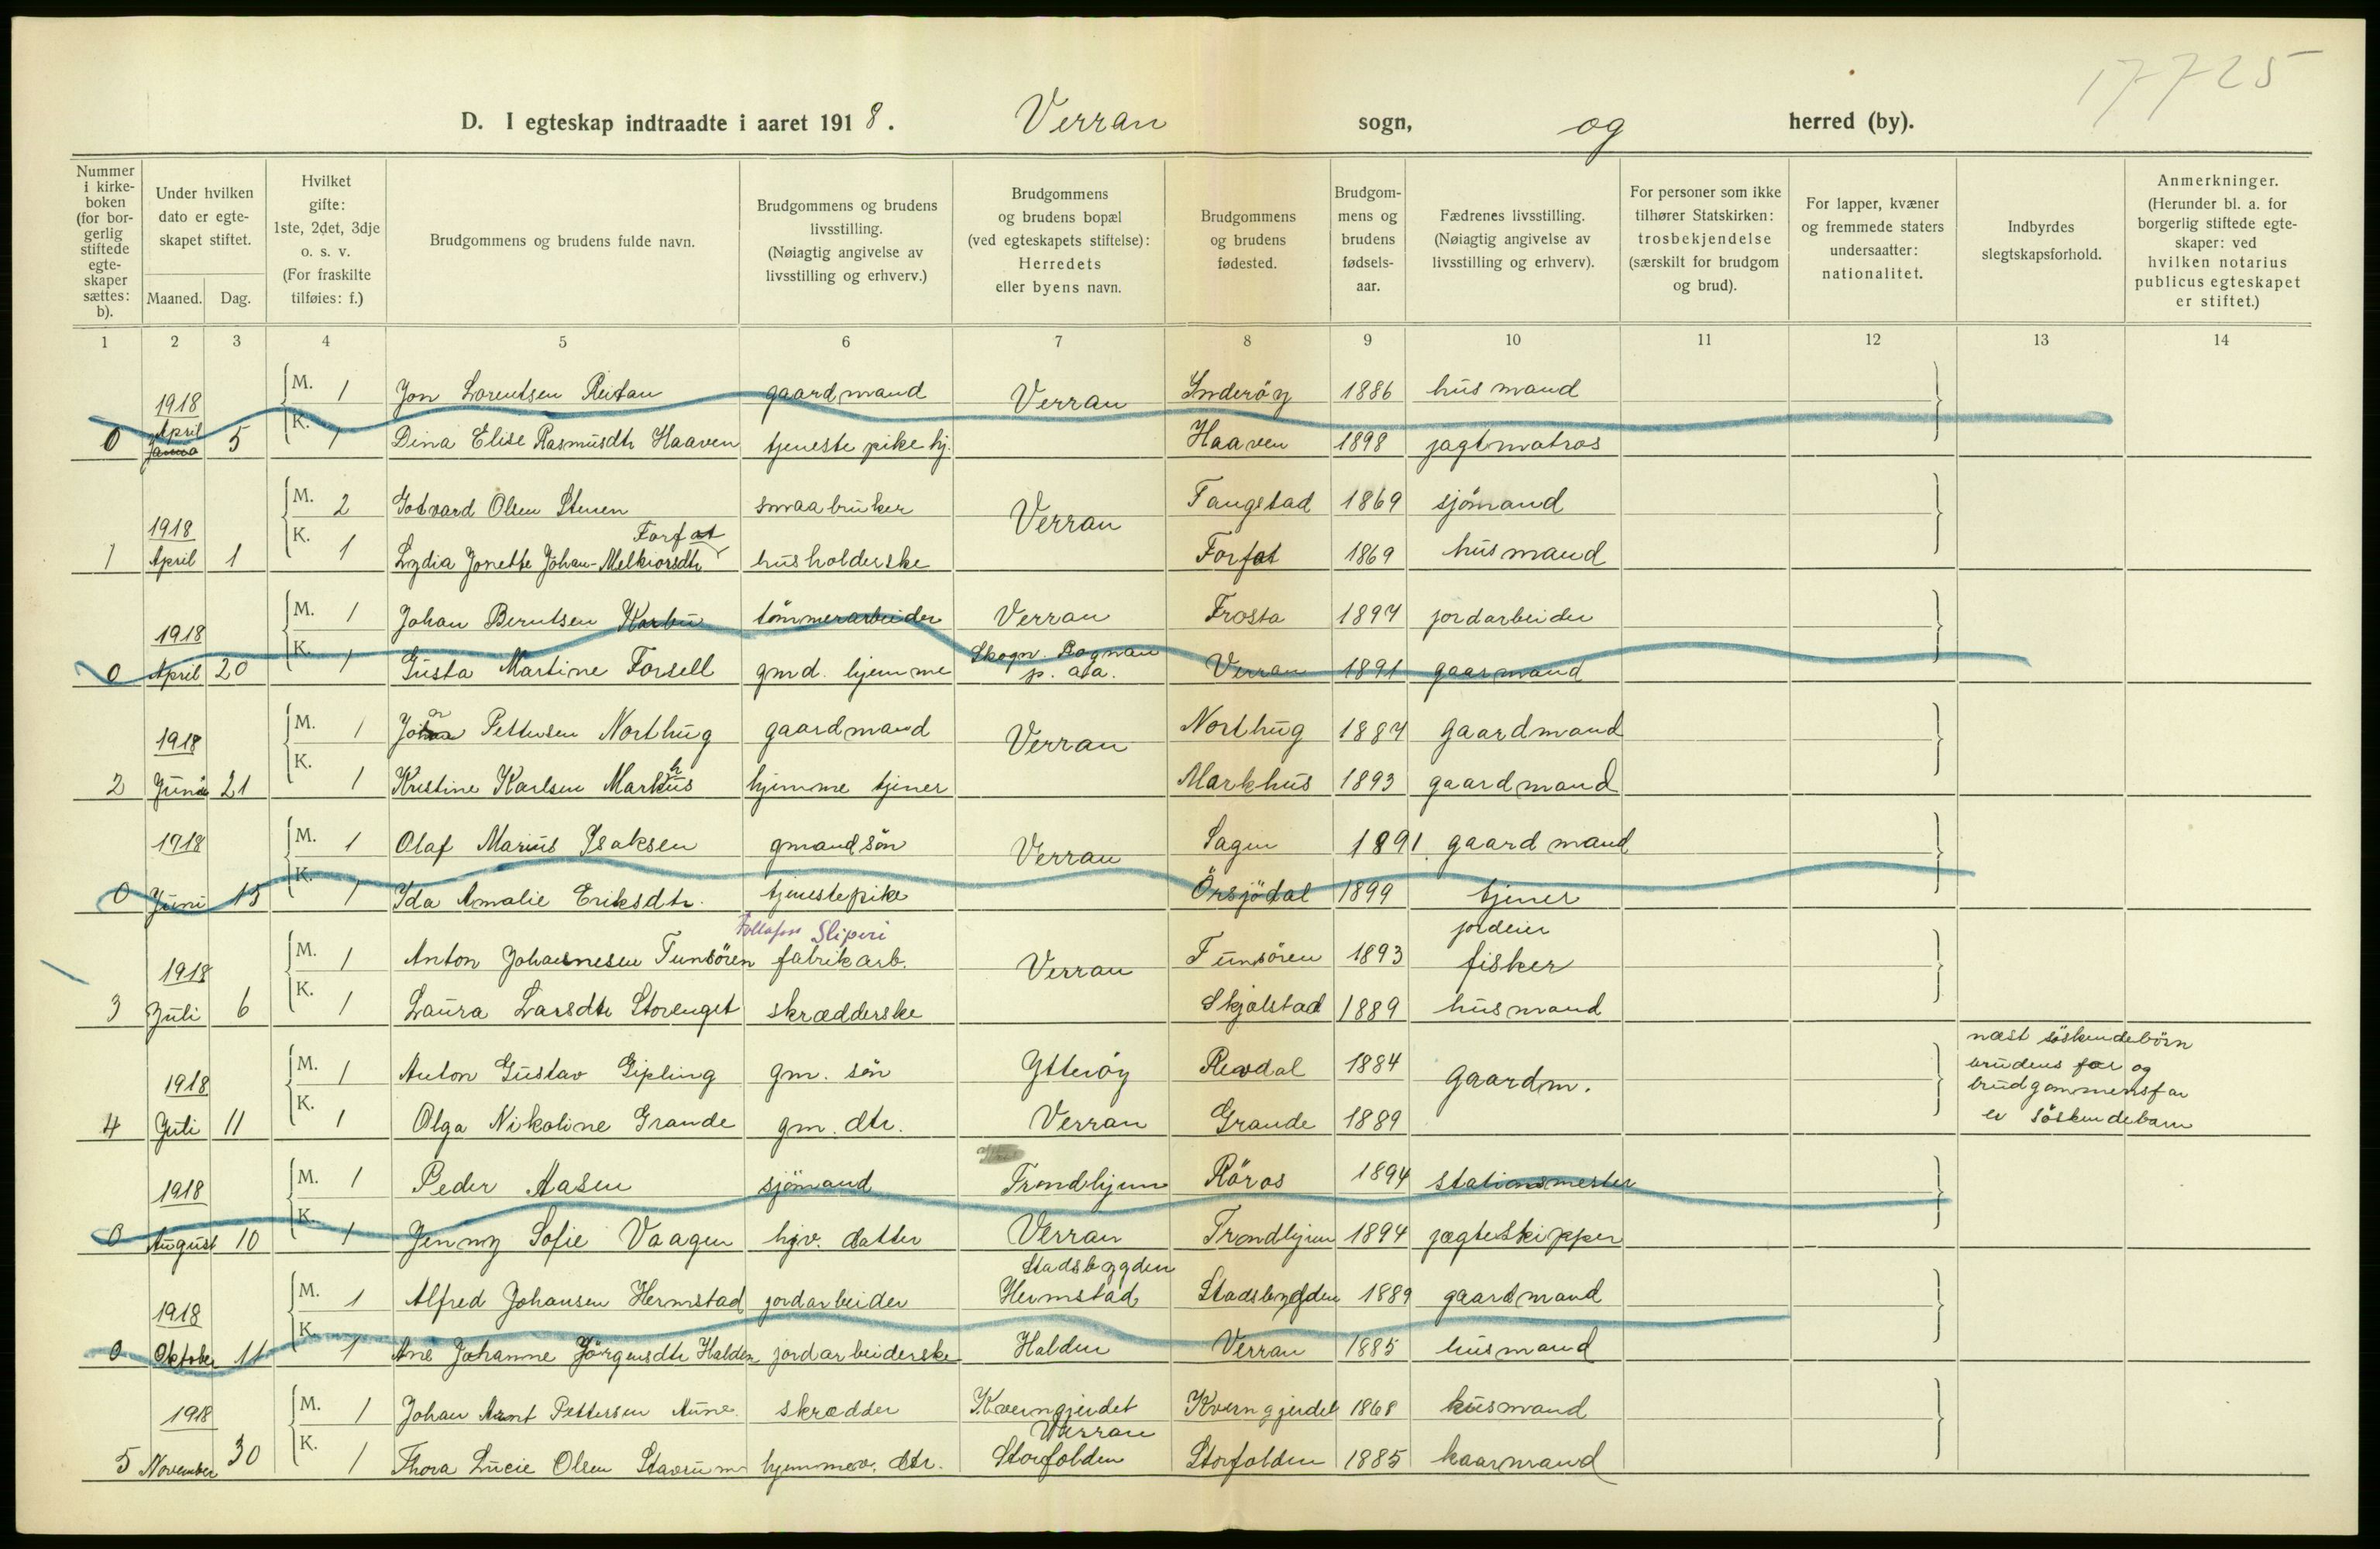 17725
D. I egteskap indtraadte i aaret 1918. Verran sogn, og herred (by).
Nummer i kirke-boken (for bor-gerlig stiftede egte-skaper sættes: b).
Under hvilken dato er egte-skapet stiftet.
Maaned. Dag.
Hvilket gifte: 1ste, 2det, 3dje o. s. v. (For fraskilte tilføies: f.)
Brudgommens og brudens fulde navn.
Brudgommens og brudens livsstilling. (Nøiagtig angivelse av livsstilling og erhverv.)
Brudgommens og brudens bopæl (ved egteskapets stiftelse): Herredets eller byens navn.
Brudgommens og brudens fødested.
Brudgom-mens og brudens fødsels-aar.
Fædrenes livsstilling. (Nøiagtig angivelse av livsstilling og erhverv).
For personer som ikke tilhører Statskirken: trosbekjendelse (særskilt for brudgom og brud).
For lapper, kvæner og fremmede staters undersaatter: nationalitet.
Indbyrdes slegtskapsforhold.
Anmerkninger. (Herunder bl. a. for borgerlig stiftede egte-skaper: ved hvilken notarius publicus egteskapet er stiftet.)
1 2 3 4 5 6 7 8 9 10 11 12 13 14
1918 M. 1 Jon Lorentsen Reitan gaardmand Verran Inderöy 1886 husmand
0 April 5 K. 1 Dina Elise Rasmusdtr Haaven tjenestepike hj. Haaven 1898 jagtmatros
1918 M. 2 Gotvard Olsen Stenen smaabruker Verran Tangstad 1869 sjömand
Forfot
1 April 1 K. 1 Lydia Jonette Johan-Melkiorsdtr husholderske Forfot 1869 husmand
1918 M. 1 Johan Berntsen Karbu tömmerarbeider Verran Frosta 1894 jordarbeider
0 April 20 K. 1 Gusta Martine Forsell gmd. hjemme Skogn. Rognan p. ata. Verran 1891 gaarmand
1918 M. 1 Johan Pettersen Northug gaardmand Verran Northug 1884 gaardmand
2 Juni 21 K. 1 Kristine Karlsen Markhus hjemme tjener Markhus 1893 gaardmand
1918 M. 1 Olaf Marius Isaksen gmandsön Verran Sagen 1891 gaardmand
0 Juni 15 K. 1 Ida Amalie Eriksdtr. tjenestepike Örsjödal 1899 tjener
Follafoss Sliperi jordeier
1918 M. 1 Anton Johannesen Tunsören fabrikarb. Verran Tunsören 1893 fisker
3 Juli 6 K. 1 Laura Larsdtr Storenget skrædderske Skjelstad 1889 husmand
næst söskendebörn
1918 M. 1 Anton Gustav Gipling gm. sön Ytteröy Revdal 1884 gaardm. brudens far og
brudgommens far
4 Juli 11 K. 1 Olga Nikoline Grande gm. dtr. Verran Grande 1889 er söskendebarn
1918 M. 1 Peder Aasen sjömand Trondhjem Röros 1894 stationsmester
0 August 10 K. 1 Jenny Sofie Vaagen hjv. datter Verran Trondhjem 1894 jægteskipper
Stadsbygden
1918 M. 1 Alfred Johansen Hermstad jordarbeider Hermstad Stadsbygden 1889 gaardmand
0 Oktober 11 K. 1 Ane Johanne Jörgensdtr Halden jordarbeiderske Halden Verran 1885 husmand
1918 M. 1 Johan Arnt Pettersen Aune skrædder Kverngjerdet Kverngjerdet 1868 husmand
Verran
5 November 30 K. 1 Thora Lucie Olsen Stavrum hjemmev. dtr. Storfolden Storfolden 1885 kaarmand